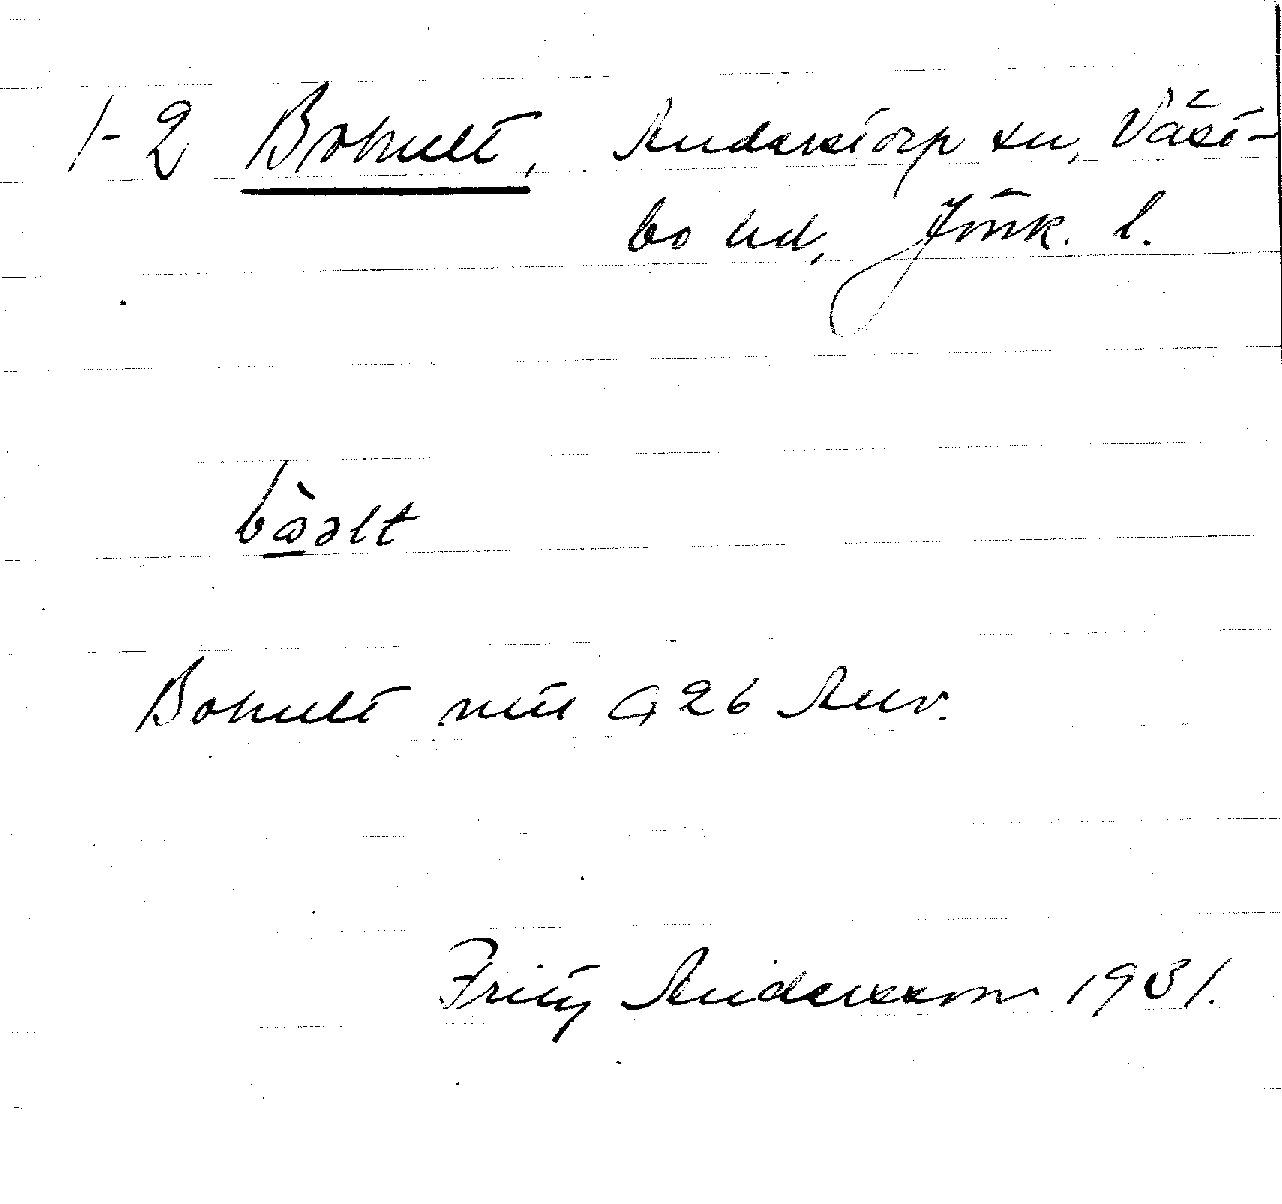 1-2 Bohult, Anderstorp sn, Väst-
bo hd, Jönk. l.
bὼəlt
Bohult mtl G 26 Anv.
Fritz Andersson 1931.